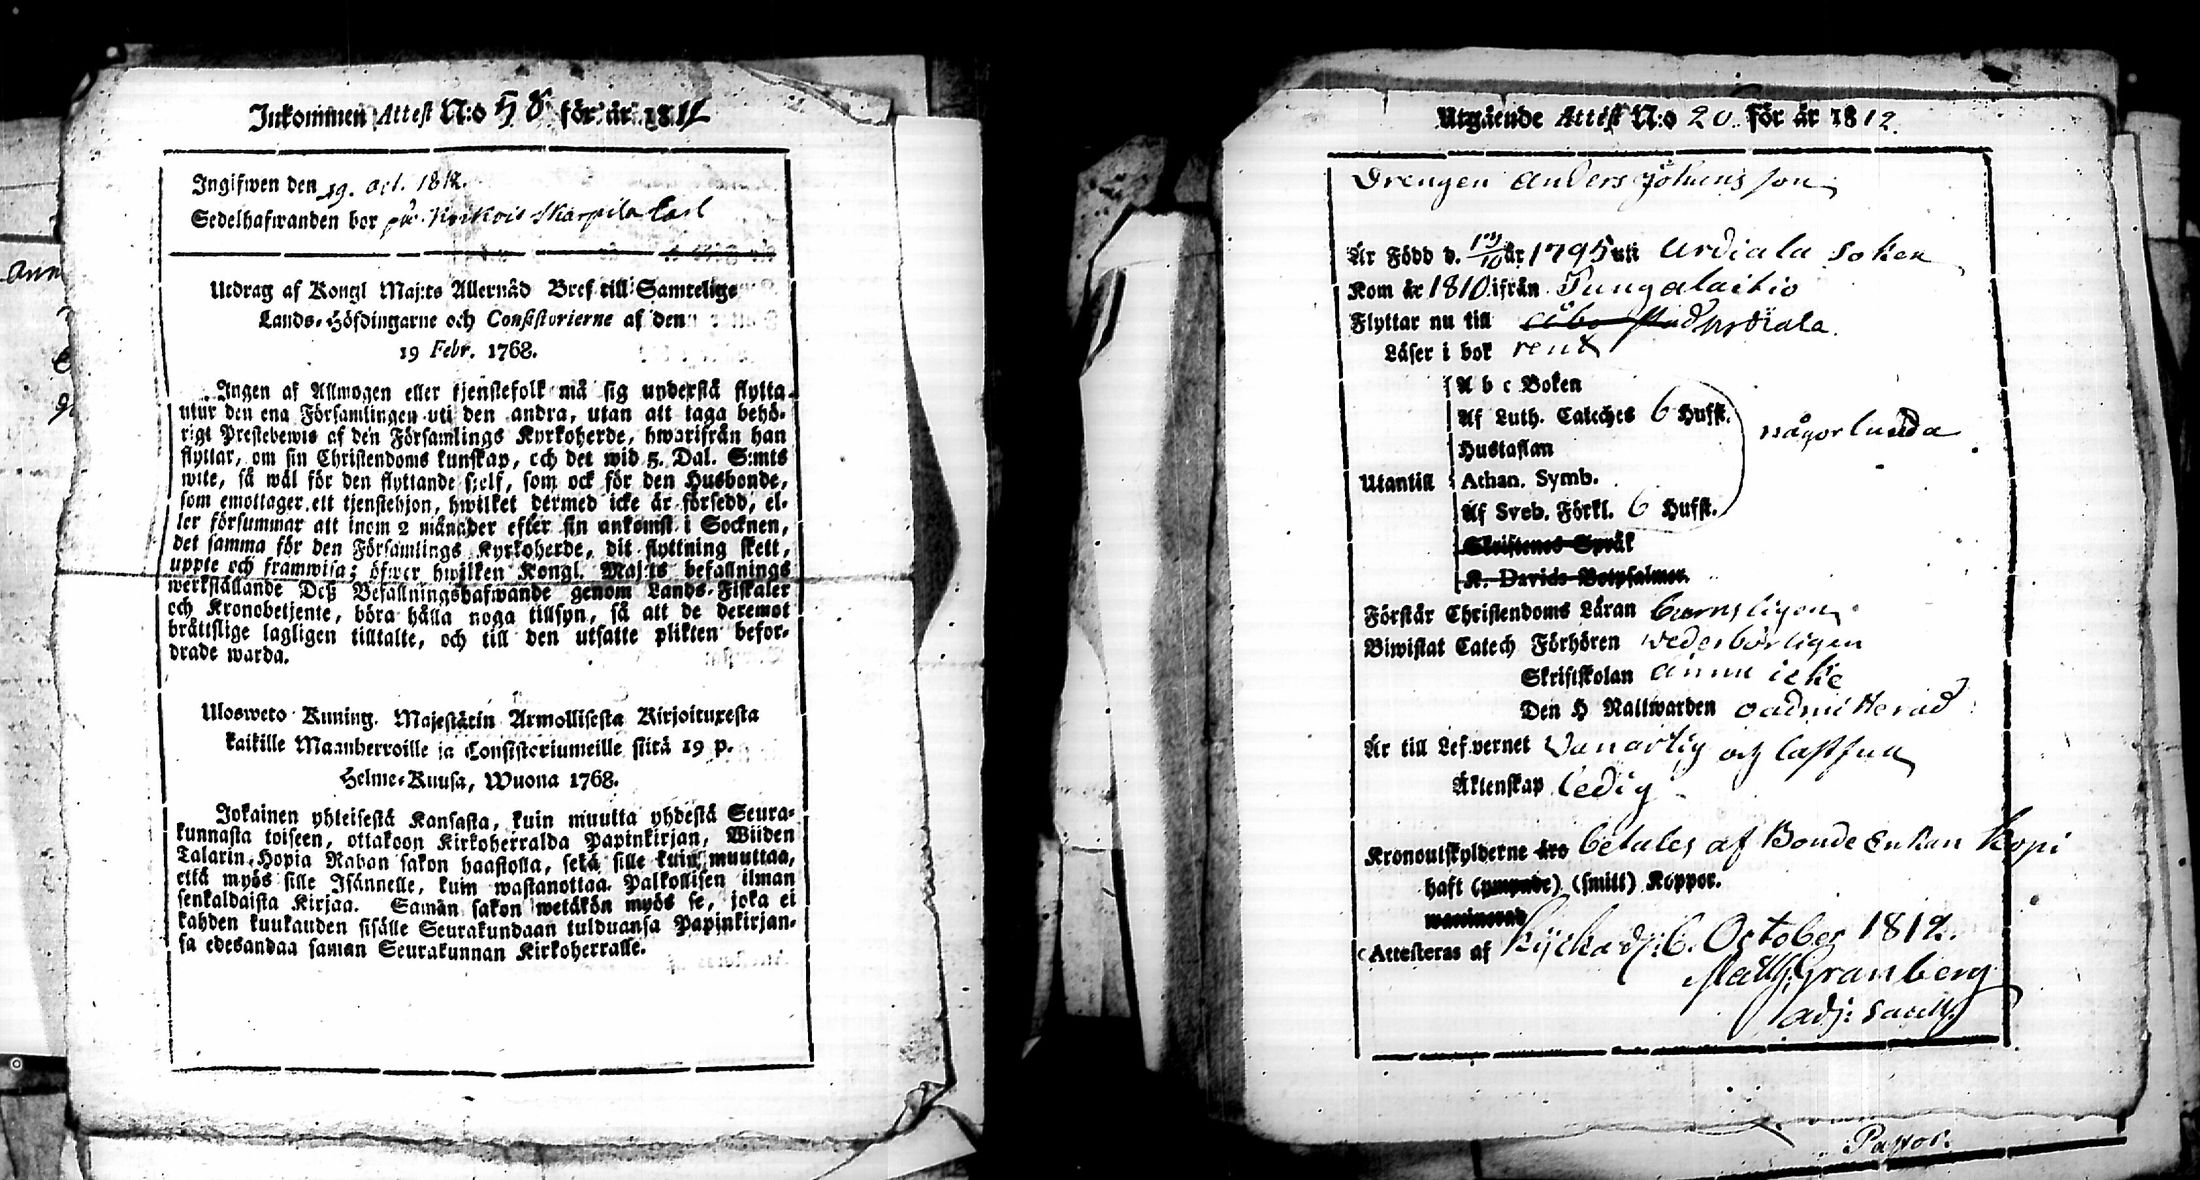 Inkommen Attest N:o 58 för år 1812
Ingifwen den 19. Oct. 1812.
Sedelhafwanden bor på
Utdrag af Kongl Maj:ts Allernåd Bref till Samtelige
Lands-Höfdingarne och Consistorierne af den
19 Febr. 1768.
Ingen af Allmogen eller tjenstefolk må sig understå flytta
utur den ena Församlingen uti den andra, utan att taga behö-
rigt Prestebewis af den Församlings Kyrkoherde, hwarifrån han
flyttar, om sin Christendoms kunskap, och det wid 5. Dal. S:mts
wite, så wäl för den flyttande sjelf, som ock för den Husbonde,
som emottager ett tjenstehjon, hwilket dermed icke är försedd, el-
ler försummar att inom 2 månader efter sin ankomst i Socknen,
det samma för den Församlings Kyrkoherde, dit flyttning skett,
uppte och framwisa; öfwer hwilken Kongl. Maj:ts befallnings
werkställande Deß Befallningshafwande genom Lands-Fiskaler
och Kronobetjente, böra hålla noga tillsyn, så att de deremot
bråttslige lagligen tilltalte, och till den utsatte plikten befor-
drade warda.
Ulosweto Kuning. Majestätin Armollisesta Kirjoituxesta
kaikille Maanherroille ja Consistoriumeille siitä 19 p.
Helme-Kuusa, Wuona 1768.
Jokainen yhteisestä Kansasta, kuin muutta yhdestä Seura-
kunnasta toiseen, ottakoon Kirkoherralda Papinkirjan, Wiiden
Talarin Hopia Rahan sakon haastolla, sekä sille kuin muuttaa,
että myös sille Isännelle, kuin wastanottaa Palkollisen ilman
senkaldaista Kirjaa. Samän sakon wetäkön myös se, joka ei
kahden kuukauden sisälle Seurakundaan tulduansa Papinkirjan-
sa edesandaa saman Seurakunnan Kirkoherralle.
Utgående Attest N:o 20 för år 1812.
Drengen Anders Johansson
Är Född d. år 1795 uti Urdiala Soken
Kom år 1810 ifrån Tungalaitio
Flyttar nu till Åbo stad Urdiala.
Läser i bok rent
A b c Boken
Af Luth. Cateches 6 Hufst.
Hustaflan
någorlunda
Utantill Athan. Symb.
Af Sveb. Förkl. 6 Hufst.
Skriftenes Språk
K. Davids Botpsalmer.
Förstår Christendoms Läran barnsligen
Biwistat Catech Förhören wederbörligen
Skriftskolan ännu icke
Den H Nattwarden oadmitterad
Är till Lefvernet Vanartig och lastfull
Äktenskap ledig
Kronoutskylderne äro betales af Bonde Enkan Kopi
haft (ympade) (smitt) Koppor.
waccinerad
Attesteras af Kjicka d: 6. October 1812.
Matth: Granberg
adj: Sacell.
Pastor.